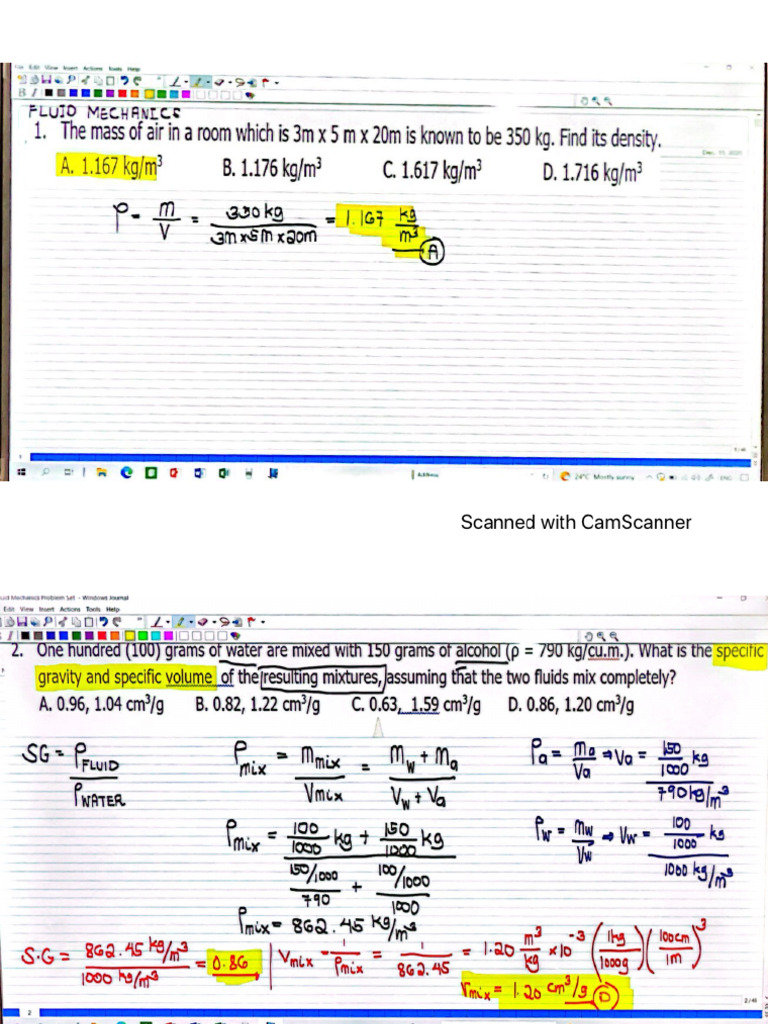 File Edit View Insert Actions Tools Help
FLUID MECHANICS
1. The mass of air in a room which is 3m x 5 m x 20m is known to be 350 kg. Find its density.
Dec. 10, 2020
A. 1.167 kg/m³ B. 1.176 kg/m³ C. 1.617 kg/m³ D. 1.716 kg/m³
ρ = m/V = 350kg/(3m x 5m x 20m) = 1.167 kg/m³
A
24°C Mostly sunny
Scanned with CamScanner
Fluid Mechanics Problem Set - Windows Journal
Edit View Insert Actions Tools Help
2. One hundred (100) grams of water are mixed with 150 grams of alcohol (ρ = 790 kg/cu.m.). What is the specific
gravity and specific volume of the resulting mixtures, assuming that the two fluids mix completely?
A. 0.96, 1.04 cm³/g B. 0.82, 1.22 cm³/g C. 0.63, 1.59 cm³/g D. 0.86, 1.20 cm³/g
SG = ρFLUID/ρWATER
ρmix = Mmix/Vmix = (Mw + Ma)/(Vw + Va)
ρa = ma/Va ⇒ Va = (150/1000 kg)/(790 kg/m³)
ρmix = (100/1000 kg + 150/1000 kg)/((150/1000)/790 + (100/1000)/1000)
ρw = mw/Vw ⇒ Vw = (100/1000 kg)/(1000 kg/m³)
ρmix = 862.45 kg/m³
S.G = (862.45 kg/m³)/(1000 kg/m³) = 0.86
Vmix = 1/ρmix = 1/862.45 = 1.20 m³/kg x10⁻³ (1kg/1000g)(100cm/1m)³
Vmix = 1.20 cm³/g D
2